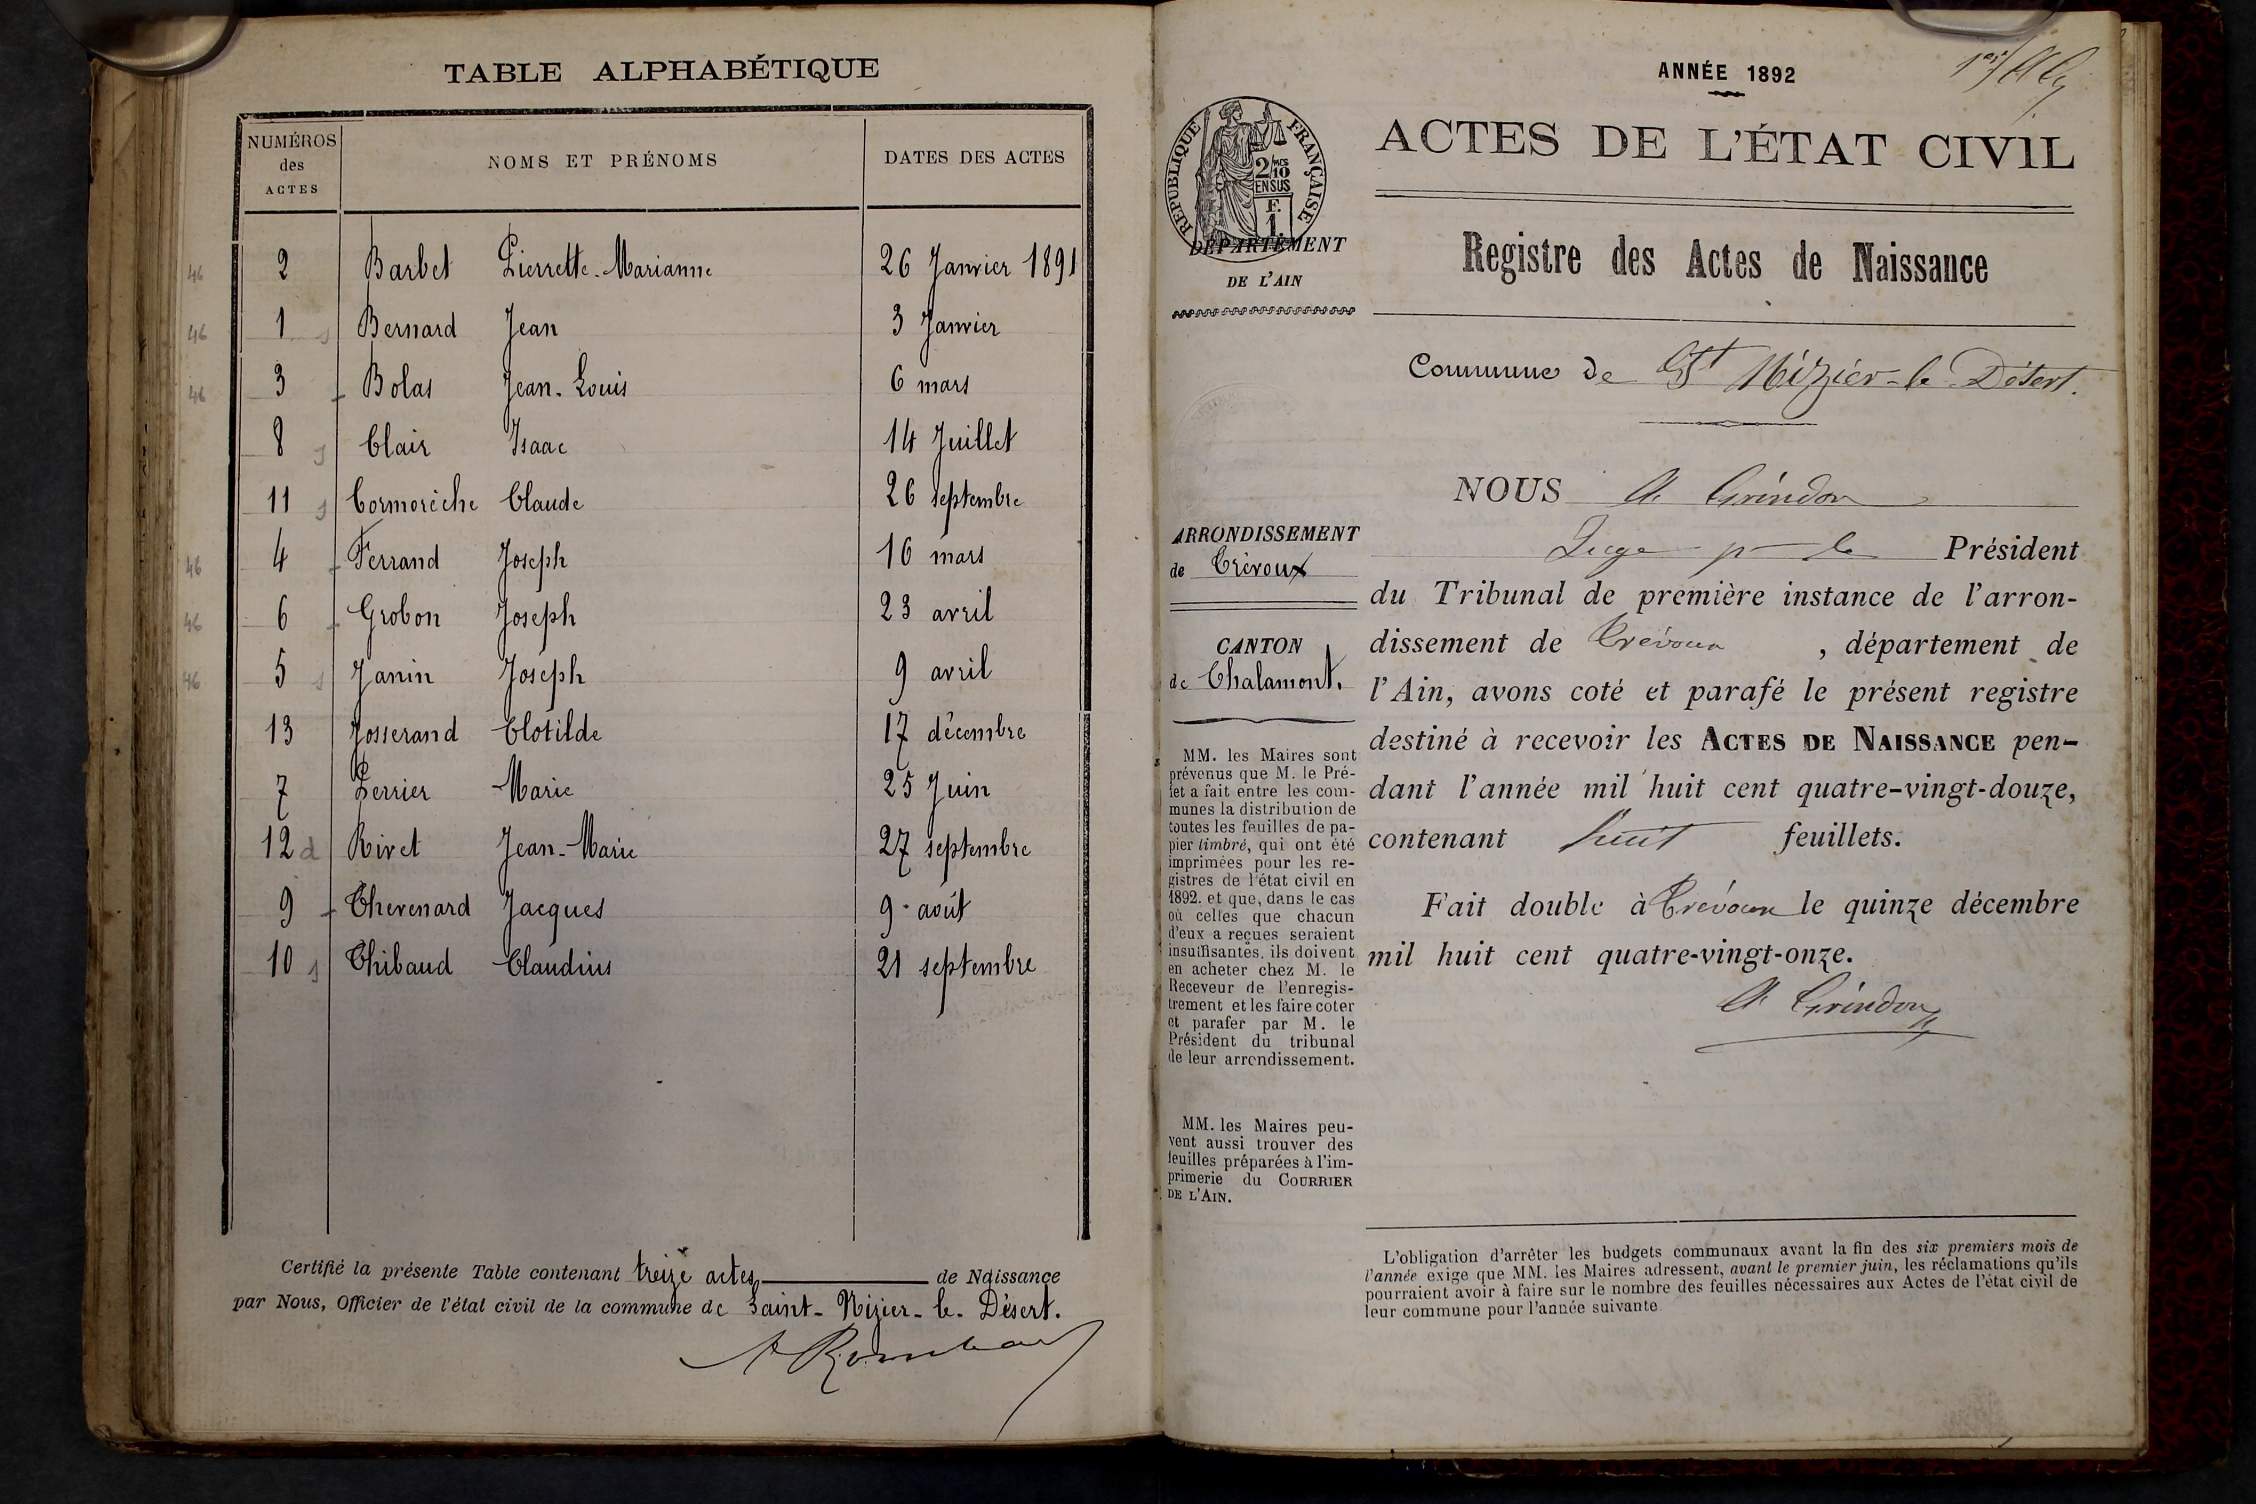 TABLE ALPHABÉTIQUE
NUMÉROS des ACTES
NOMS ET PRÉNOMS
DATES DES ACTES
46 2 Barbet Pierrette-Marianne 26 Janvier 1891
46 1 Bernard Jean 3 Janvier
46 3 Bolas Jean-Louis 6 mars
8 Clair Isaac 14 Juillet
11 Cormorèche Claude 26 septembre
46 4 Ferrand Joseph 16 mars
46 6 Grobon Joseph 23 avril
46 5 Janin Joseph 9 avril
13 Josserand Clotilde 17 décembre
7 Perrier Marie 25 Juin
12 d Rivet Jean-Marie 27 septembre
9 Thevenard Jacques 9 août
10 Thibaud Claudius 21 septembre
Certifié la présente Table contenant treize actes de Naissance
par Nous, Officier de l'état civil de la commune de Saint-Nizier-le-Désert.
ANNÉE 1892
RÉPUBLIQUE FRANÇAISE
2/10 EN SUS
F. 1.
DÉPARTEMENT
DE L'AIN
ACTES DE L'ÉTAT CIVIL
Registre des Actes de Naissance
Commune de St Nizier-le-Désert.
ARRONDISSEMENT
de Trévoux
CANTON
de Chalamont.
MM. les Maires sont
prévenus que M. le Pré-
fet a fait entre les com-
munes la distribution de
toutes les feuilles de pa-
pier timbré, qui ont été
imprimées pour les re-
gistres de l'état civil en
1892. et que, dans le cas
où celles que chacun
d'eux a reçues seraient
insuffisantes, ils doivent
en acheter chez M. le
Receveur de l'enregis-
trement et les faire coter
et parafer par M. le
Président du tribunal
de leur arrondissement.
MM. les Maires peu-
vent aussi trouver des
feuilles préparées à l'im-
primerie du COURRIER
DE L'AIN.
NOUS A. Grindon
Juge pr le Président
du Tribunal de première instance de l'arron-
dissement de Trévoux, département de
l'Ain, avons coté et parafé le présent registre
destiné à recevoir les ACTES DE NAISSANCE pen-
dant l'année mil huit cent quatre-vingt-douze,
contenant huit feuillets.
Fait double à Trévoux le quinze décembre
mil huit cent quatre-vingt-onze.
A. Grindon
L'obligation d'arrêter les budgets communaux avant la fin des six premiers mois de
l'année exige que MM. les Maires adressent, avant le premier juin, les réclamations qu'ils
pourraient avoir à faire sur le nombre des feuilles nécessaires aux Actes de l'état civil de
leur commune pour l'année suivante